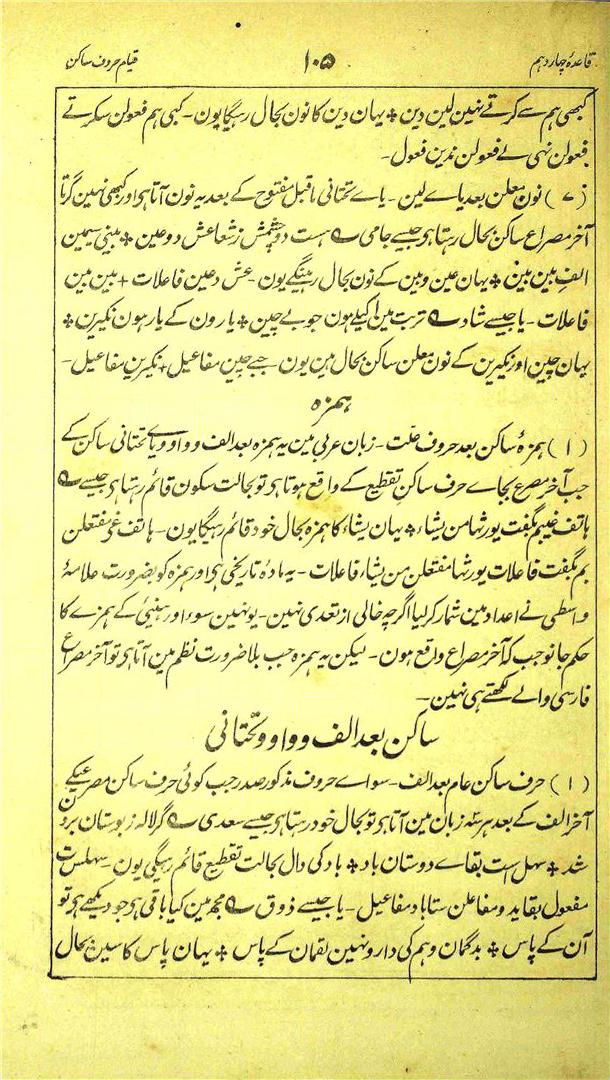 قاعدهٔ چہاردہم
۱۰۵
قیام حروف ساکن
کبھی ہم سے کرتے نہین لین دین ٭ یہان دین کا نون بحال رہیگا یون۔ کبی ہم فعولن سکرتے
فعولن نہی لے فعولن ندین فعول۔
(۷) نون معلن بعد یاے لین۔ یاے تحتانی ماقبل مفتوح کے بعد یہ نون آتا ہی اور کبھی نہین گرتا
آخر مصراع ساکن بحال رہتا ہو جیسے جامی ؎ ہست دو چشمش ز شعاعش دو عین ٭ بینی سیمین
الف بین بین ٭ یہان عین و بین کے نون بحال رہینگے یون۔ عش دعین فاعلات + بین بین
فاعلات۔ یا جیسے شاد ؎ تربت مین اکیلے ہون جو بے چین ٭ یارون کے یار ہون نکیرین ٭
یہان چین اور نکیرین کے نون معلن ساکن بحال ہین یون۔ جبے چین مفاعیل + نکیرین مفاعیل۔
ہمزہ
(۱) ہمزۂ ساکن بعد حروف علت۔ زبان عربی مین یہ ہمزہ بعد الف و واو و یاے تحتانی ساکن کے
جب آخر مصرع بجاے حرف ساکن تقطیع کے واقع ہوتا ہی تو بحالت سکون قائم رہتا ہی جیسے ؎
ہاتف غیبم بگفت یورثہا من یشاء ٭ یہان یشاء کا ہمزہ بحال خود قائم رہیگا یون۔ ہاتف غی مفتعلن
بم بگفت فاعلات یورثہا مفتعلن من یشاء فاعلات۔ یہ مادۂ تاریخی ہی اور ہمزہ کو بضرورت علامۂ
واسطی نے اعداد مین شمار کر لیا اگرچہ خالی از تعدی نہین۔ یونہین سوء اور ہنیئ کے ہمزے کا
حکم جانو جب کہ آخر مصراع واقع ہون۔ لیکن یہ ہمزہ جب بلا ضرورت نظم مین آتا ہی تو آخر مصراع
فارسی والے لکھتے ہی نہین۔
ساکن بعد الف و واو و تحتانی
(۱) حرف ساکن عام بعد الف۔ سواے حروف مذکور صدر جب کوئی حرف ساکن مصرع کے
آخر الف کے بعد ہر سہ زبان مین آتا ہی تو بحال خود رہتا ہی جیسے سعدی ؎ گر لالہ ز بوستان برون
شد ٭ سہل است بقاے دوستان باد ٭ باد کی دال بحالت تقطیع قائم رہیگی یون۔ سہلست
مفعول بقاید و مفاعلن ستا باد مفاعیل۔ یا جیسے ذوق ؎ مجھ مین کیا باقی ہی جو دیکھے ہی تو
آن کے پاس ٭ بدگمان وہم کی دارو نہین لقمان کے پاس ٭ یہان پاس کا سین بحال